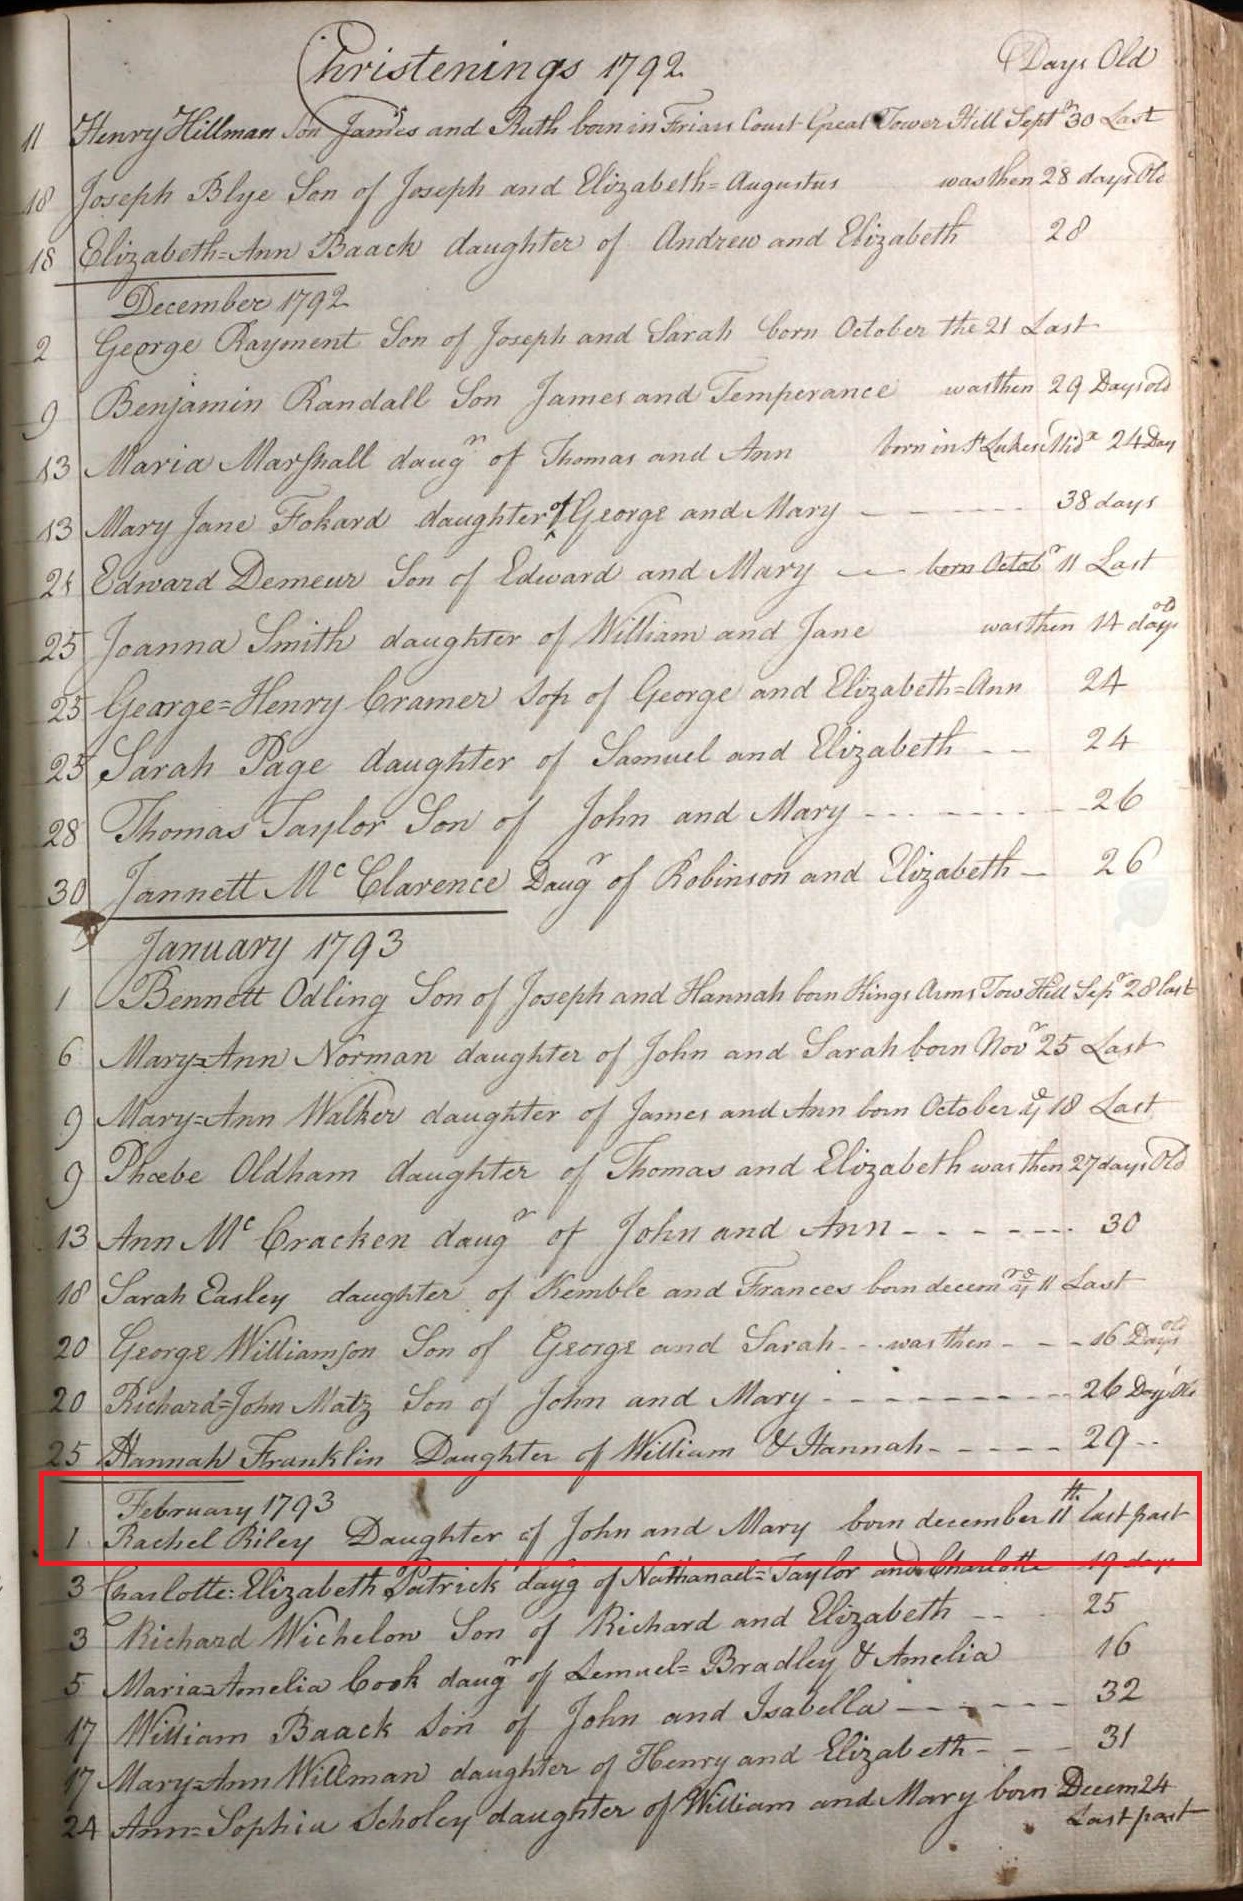 Christenings 1792 Days Old
11 Henry Hillman Son James and Ruth born in Friars Court Great Tower Hill Septr 30 Last
18 Joseph Blye Son of Joseph and Elizabeth=Augustus was then 28 days Old
18 Elizabeth=Ann Baack daughter of Andrew and Elizabeth 28
December 1792
2 George Rayment Son of Joseph and Sarah born October the 21 Last
9 Benjamin Randall Son James and Temperance was then 29 Days old
13 Maria Marshall daugr of Thomas and Ann born in St Lukes Midx 24 Day
13 Mary Jane Fokard daughter of George and Mary 38 days
21 Edward Demeur Son of Edward and Mary born Octobr 11 Last
25 Joanna Smith daughter of William and Jane was then 14 days old
25 George=Henry Cramer Son of George and Elizabeth=Ann 24
25 Sarah Page daughter of Samuel and Elizabeth - - 24
28 Thomas Taylor Son of John and Mary - - - - - - - 26
30 Jannett Mc Clarence Daugr of Robinson and Elizabeth - 26
January 1793
1 Bennett Odling Son of Joseph and Hannah born Kings Arms Tow Hill Sepr 28 last
6 Mary=Ann Norman daughter of John and Sarah born Novr 25 Last
9 Mary=Ann Walker daughter of James and Ann born October ye 18 Last
9 Phœbe Oldham daughter of Thomas and Elizabeth was then 27 days Old
13 Ann Mc Cracken daugr of John and Ann - - - - - - 30
18 Sarah Easley daughter of Kemble and Frances born decemr ye 11 Last
20 George Williamson Son of George and Sarah - - was then - - - 16 Days old
20 Richard=John Matz Son of John and Mary - - - - - - - - 26 Days Old
25 Hannah Franklin Daughter of William & Hannah - - - - - 29 - -
February 1793
1 Rachel Riley Daughter of John and Mary born december 11th last past
3 Charlotte:Elizabeth Patrick daug of Nathanael=Taylor and Charlotte 19 days
3 Richard Wichelow Son of Richard and Elizabeth - - - 25
5 Maria=Amelia Cook daugr of Lemuel=Bradley & Amelia 16
17 William Baack Son of John and Isabella - - - - - - 32
17 Mary=Ann Willman daughter of Henry and Elizabeth - - - 31
24 Ann=Sophia Scholey daughter of William and Mary born Decem 24
Last past